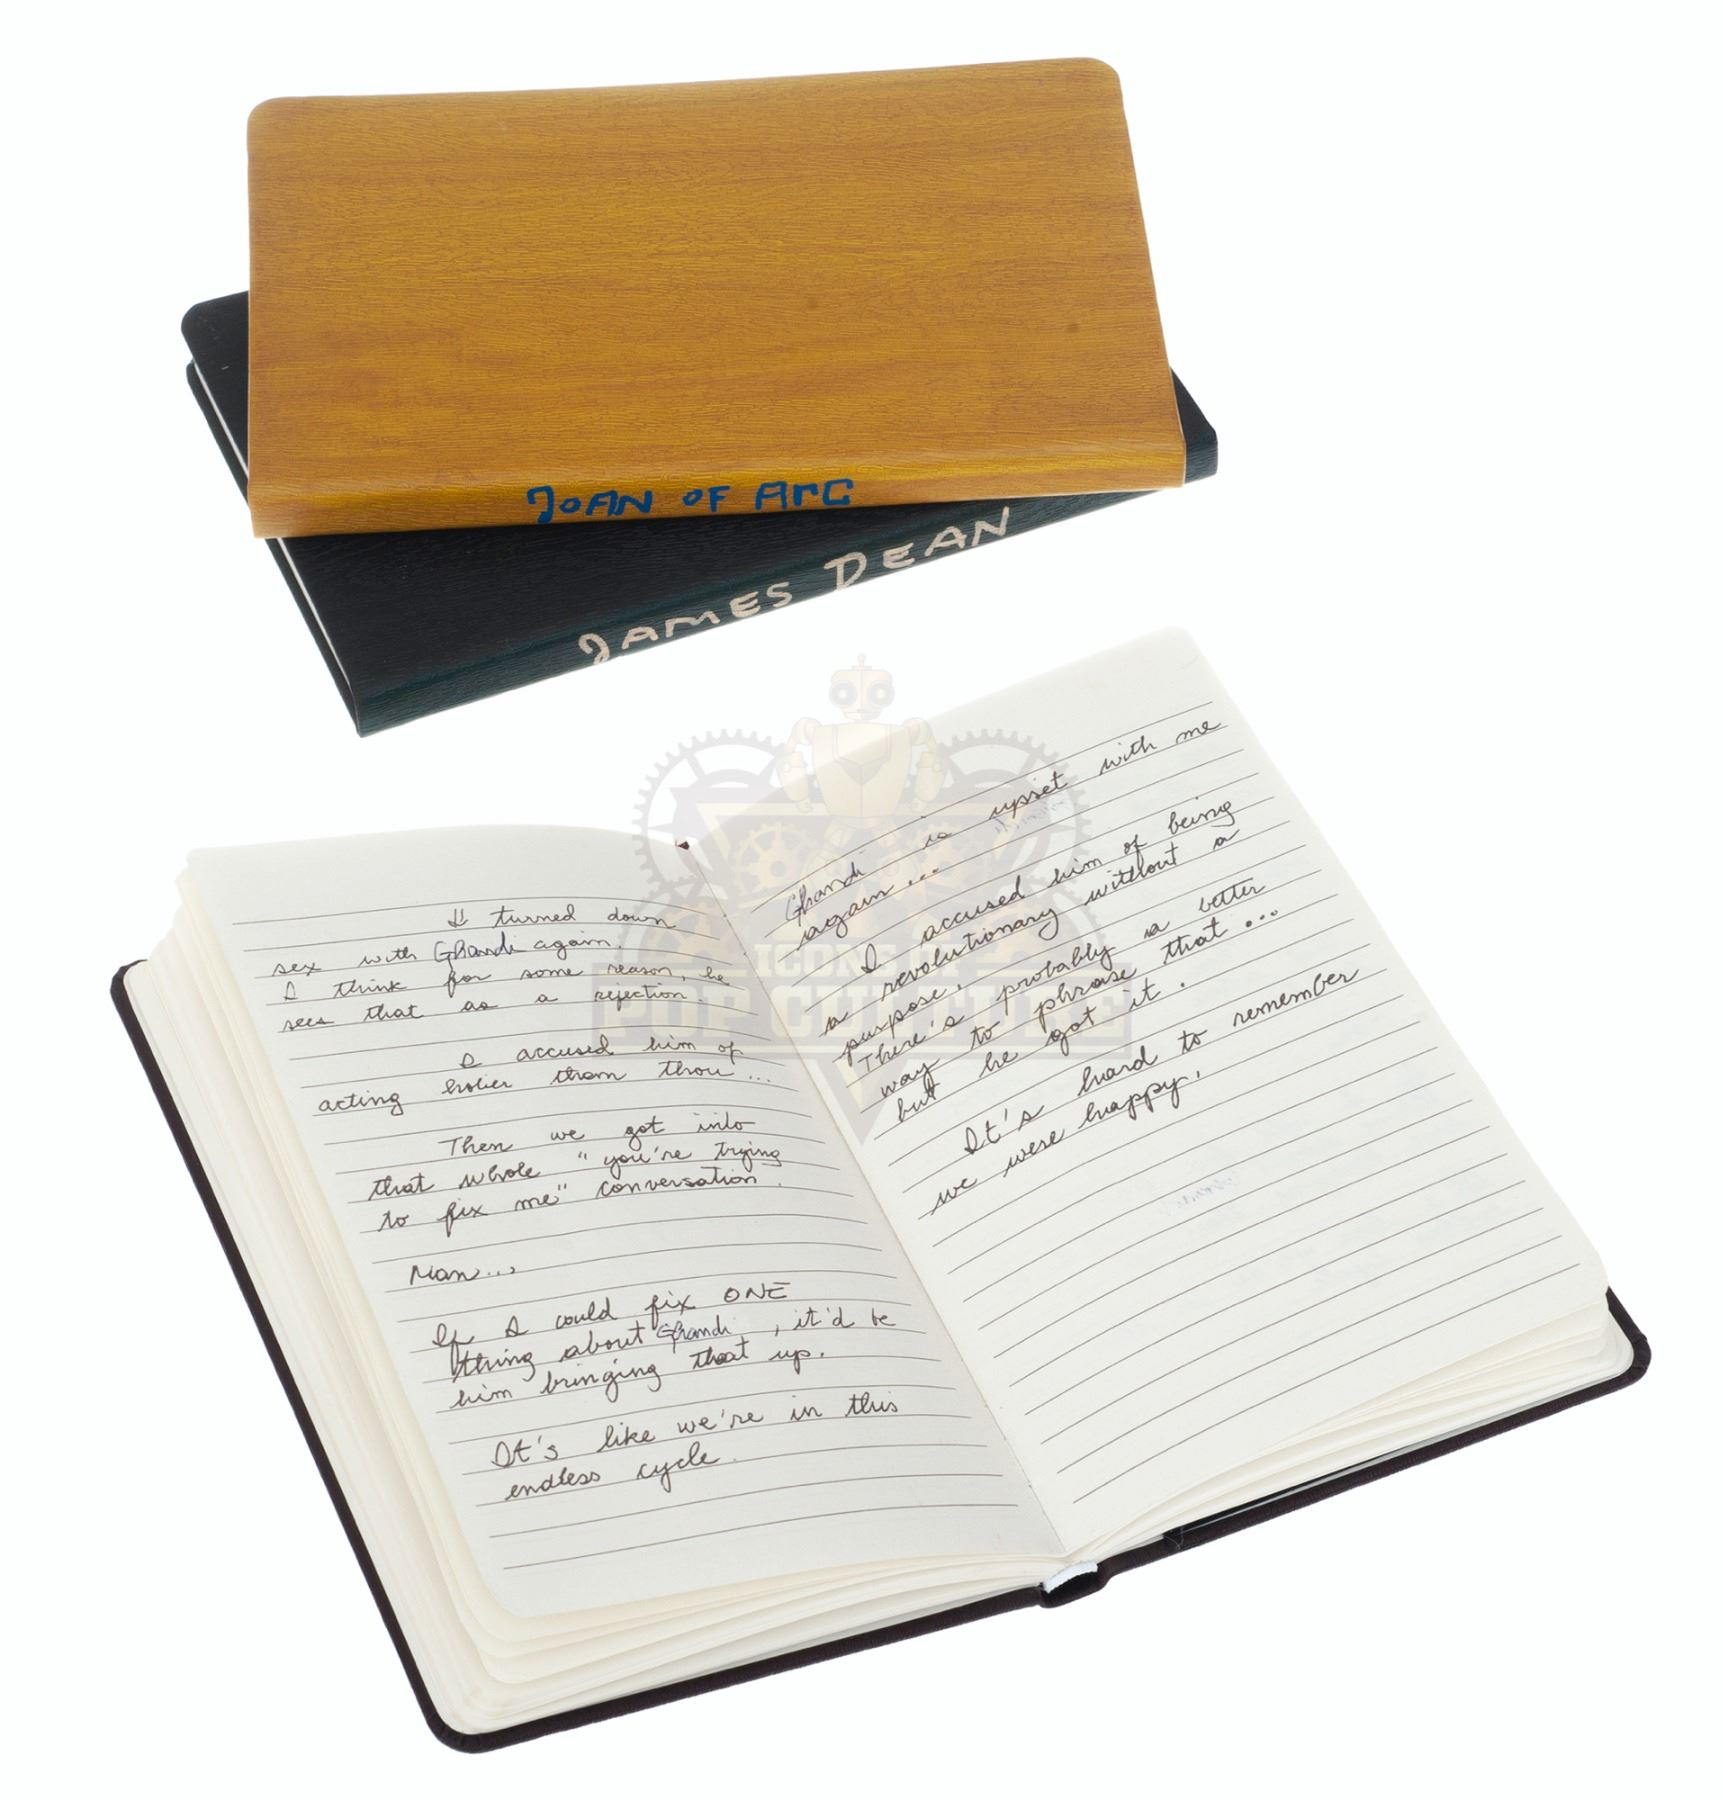 JOAN OF ArC
JAMES DEAN
ICONS OF
POP CULTURE
I turned down
sex with Ghandi again.
I think for some reason, he
sees that as a rejection.
I accused him of
acting holier than thou...
Then we got into
that whole "you're trying
to fix me" conversation.
Man...
If I could fix ONE
thing about Ghandi, it'd be
him bringing that up.
It's like we're in this
endless cycle.
Ghandi is upset with me
again...
I accused him of being
a revolutionary without a
purpose.
There's probably a better
way to phrase that...
but he got it.
It's hard to remember
we were happy.